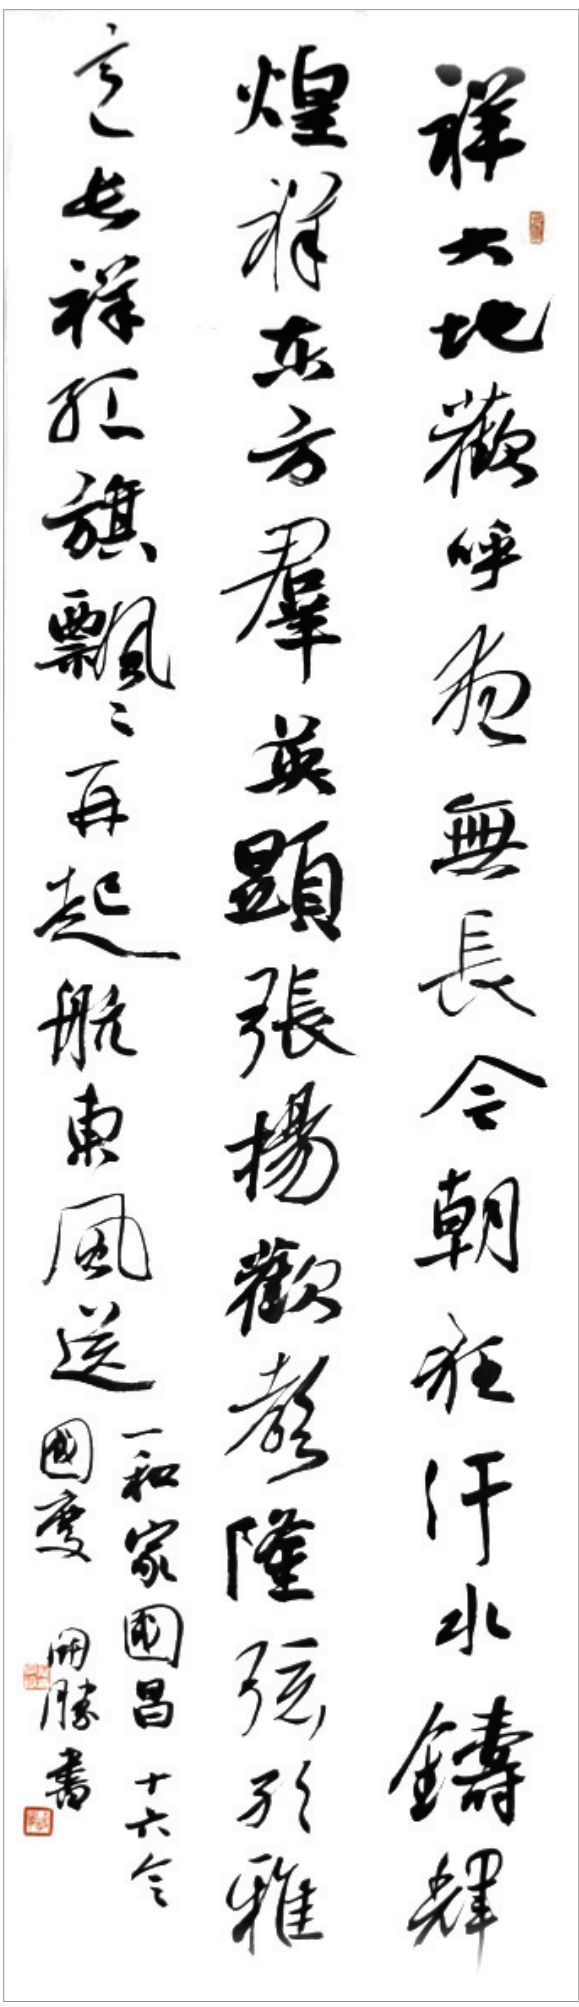 祥大地歡呼夜無長今朝狂汗水鑄輝
煌祥东方羣英顯張揚歡隆弦雅
意长祥紅旗飄〻再起航東風送
一和家國昌 十六令
國慶 開勝書